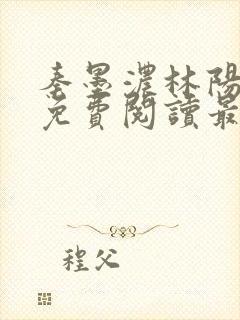 秦墨濃林陽
免費閱讀最
程父